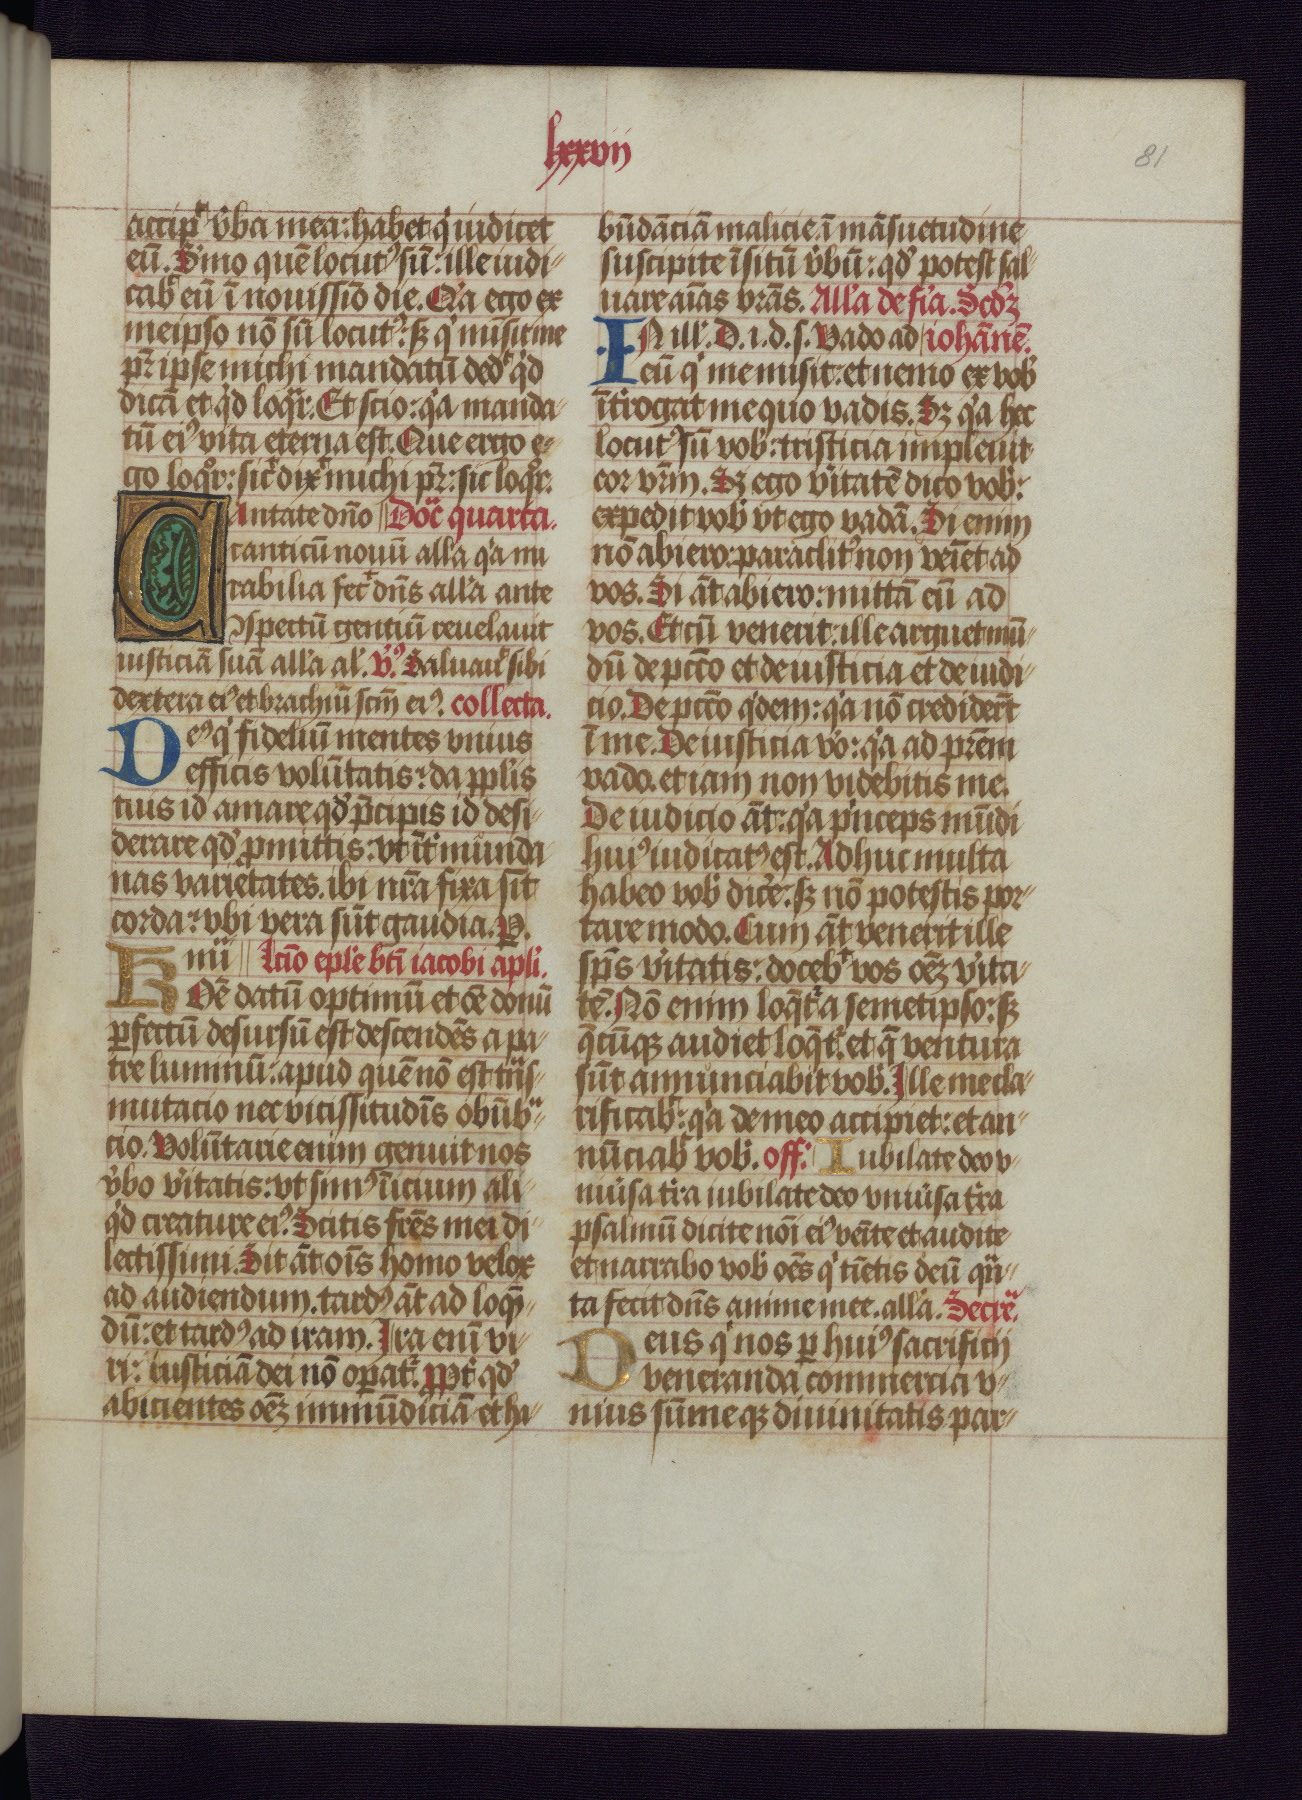 lxxvii
81
accip̄t v̓ba mea: habet q̇ iudicet
eū. S̓mo quē locut⁹ sū: ille iudi-
cab̓ eū ī nouissīo die. Q̓a ego ex
meipso nō sū locut⁹: sꝫ q̇ misit me
pr̄ ipse michi mandatū ded̓ q̇d
dicā et q̇d loqr̄. Et scio: q̓a manda-
tū ei⁹ vita eterna est. Que ergo e-
go loqr̄: sic̄ dix̓ michi pr̄: sic loqr̄.
Cantate dn̄o Doc̄ quarta.
canticū nouū all̓a q̓a mi
rabilia fec̓ dn̄s all̓a ante
ꝯspectū gentiū reuelauit
iusticiā suā all̓a al̓. v̓⁹ Saluau̓ sibi
dextera ei⁹ et brachiū scm̄ ei⁹. collecta.
De⁹ q̇ fideliū mentes vnius
efficis volūtatis: da ppl̓is
tuis id amare qd̓ p̄cipis id desi-
derare qd̓ ꝓmittis: vt īt̓ munda-
nas varietates. ibi nr̄a fixa sit
corda: vbi vera sūt gaudia. P.
R nū Lcīo epl̓e bt̄i iacobi apl̓i.
Oē datū optimū et oē donū
ꝑfectū desursū est descendēs a pa-
tre luminū: apud quē nō est trās-
mutacio nec vicissitudīs obūbᵃ-
cio. Volūtarie enim genuit nos
v̓bo v̓itatis: vt sim⁹ īicium ali-
q̇d creature ei⁹. Scitis fr̄es mei di-
lectissimi. Sit āt oīs homo velox
ad audiendum. tard⁹ āt ad loqn̄-
dū: et tard⁹ ad iram. Ira enī vi-
ri: iusticiā dei nō oꝑat̓. Ppt̓ qd̓
abicientes oēꝫ inmūdiciā et ha-
būdāciā malicie. ī māsuetudine
suscipite īsitū v̓bū: qd̓ potest sal-
uare aīas vr̄as. All̓a de fīa. Scd̓ꝫ
IN ill̓. D. i. d. s. Vado ad iohānē.
eū q̇ me misit: et nemo ex vob̓
īt̓rogat me quo vadis. Sꝫ q̓a hec
locut⁹ sū vob̓: tristicia impleuit
cor vr̄m. Sꝫ ego v̓itatē dico vob̓:
expedit vob̓ vt ego vadā. Si enim
nō abiero: paraclit⁹ non veīet ad
vos. Si āt abiero: mittā eū ad
vos. Et cū venerit: ille arguet mū-
dū de pcc̄o et de iusticia et de iudi-
cio. De pcc̄o q̇dem: q̓a nō crediderūt
ī me. De iusticia v̓o: q̓a ad prēm
vado. et iam non videbitis me.
De iudicio āt: q̓a p̓nceps mūdi
hui⁹ iudicat⁹ est. Adhuc multa
habeo vob̓ dice̓: sꝫ nō potestis por-
tare modo. Cum āt venerit ille
sp̄s v̓itatis: doceb̓ vos oēꝫ v̓ita-
tē. Nō enim loqēt̓ a semetipso: sꝫ
q̄cūqꝫ audiet loqēt̓. et q̄ ventura
sūt annunciabit vob̓. Ille me cla-
rificab̓: q̓a de meo accipiet: et an-
nūciab̓ vob̓. off. Iubilate deo v-
niu̓sa t̓ra iubilate deo vniu̓sa t̓ra
psalmū dicite nōi ei⁹ veīte et audite
et narrabo vob̓ oēs q̇ tīetis deū qū-
ta fecit dn̄s anime mee. all̓a. Secrē.
Deus q̇ nos ꝑ hui⁹ sacrificii
veneranda commercia v-
nius sūme qꝫ diuinitatis par-